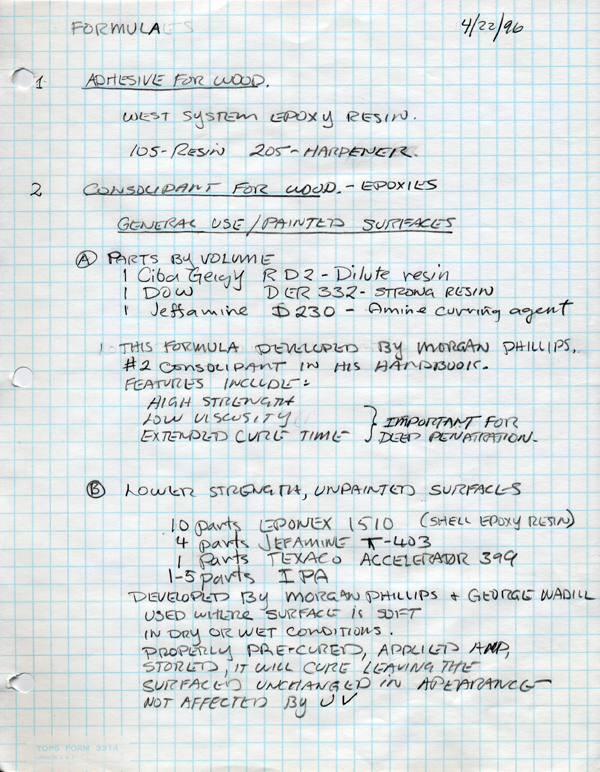 FORMULAES 4/22/96
1 ADHESIVE FOR WOOD.
WEST SYSTEM EPOXY RESIN.
105-RESIN 205-HARDENER.
2 CONSOLIDANT FOR WOOD. - EPOXIES
GENERAL USE/PAINTED SURFACES
A PARTS BY VOLUME
1 Ciba Geigy RD2 - Dilute resin
1 DOW DER 332 - STRONG RESIN
1 Jeffamine D230 - Amine curring agent
1 - THIS FORMULA DEVELOPED BY MORGAN PHILLIPS,
#2 CONSOLIDANT IN HIS HANDBOOK.
FEATURES INCLUDE:
HIGH STRENGTH
LOW VISCOSITY } IMPORTANT FOR
EXTENDED CURE TIME } DEEP PENATRATION.
B LOWER STRENGTH, UNPAINTED SURFACES
10 parts EPONEX 1510 (SHELL EPOXY RESIN)
4 parts JEFAMINE T-403
1 parts TEXACO ACCELERATOR 399
1-5 parts IPA
DEVELOPED BY MORGAN PHILLIPS + GEORGE WADILL
USED WHERE SURFACE IS SOFT
IN DRY OR WET CONDITIONS.
PROPERLY PRE-CURED, APPLIED AND,
STORED, IT WILL CURE LEAVING THE
SURFACED UNCHANGED IN APEARANCE
NOT AFFECTED BY UV
TOPS FORM 3314